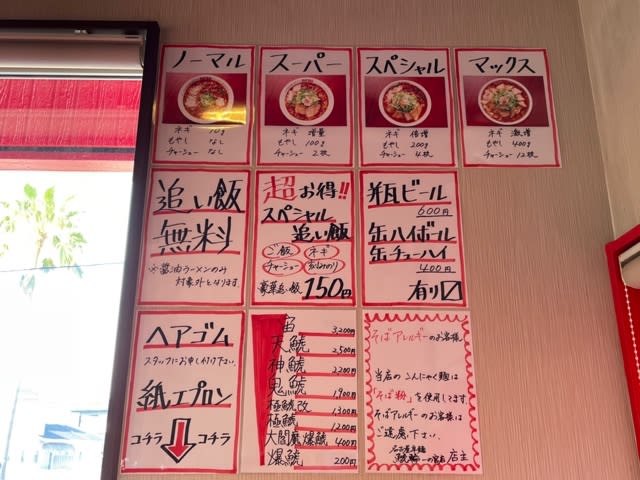 ノーマル
ネギ 10g
もやし なし
チャーシュー なし
スーパー
ネギ 増量
もやし 100g
チャーシュー 2枚
スペシャル
ネギ 倍増
もやし 200g
チャーシュー 4枚
マックス
ネギ 激増
もやし 400g
チャーシュー 12枚
追い飯
無料
※醤油ラーメンのみ
対象外となります。
超お得!!
スペシャル
追い飯
ご飯 ネギ
チャーシュー 刻みのり
豪華追い飯 150円
瓶ビール
600円
缶ハイボール
缶チューハイ
400円
有り〼
ヘアゴム
スタッフにお申し付け下さい。
紙エプロン
コチラ コチラ
宙 3,200円
天鯱 2,500円
神鯱 2,200円
鬼鯱 1,900円
極鯱改 1,300円
極鯱 1,200円
大閻魔爆鯱 400円
爆鯱 200円
そばアレルギーのお客様
当店のこんにゃく麺は
「そば粉」を使用してます。
そばアレルギーのお客様は
ご遠慮下さい。
店主